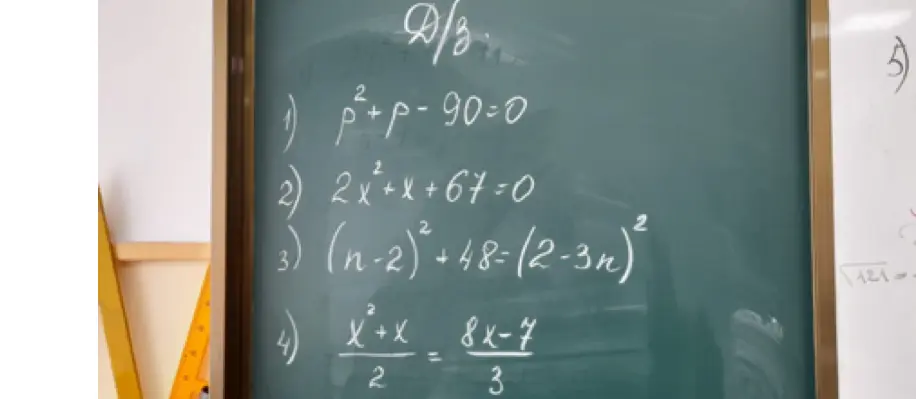 Д/з.
1) p² + p - 90 = 0
2) 2x² + x + 67 = 0
3) (n - 2)² + 48 = (2 - 3n)²
4) \frac{x² + x}{2} = \frac{8x - 7}{3}
5)
√121 =